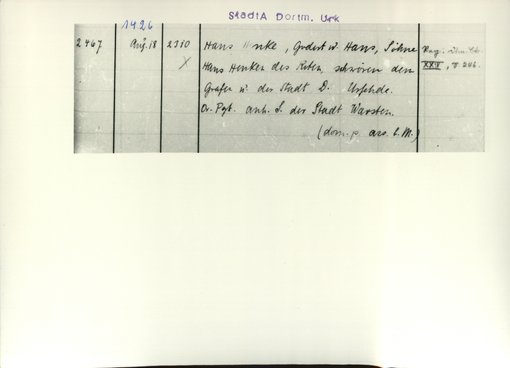 StadtA Dortm. Urk
1426
2467 Aug. 18 2310 Hans Henke, Godert u Hans, Söhne
X Hans Henken des Roten, schwören den XXIV, S. 246.
Grafen u. der Stadt D. Urfehde.
Or. Pgt. anh. S. der Stadt Warsten.
(dom. p. ass. b. M.)